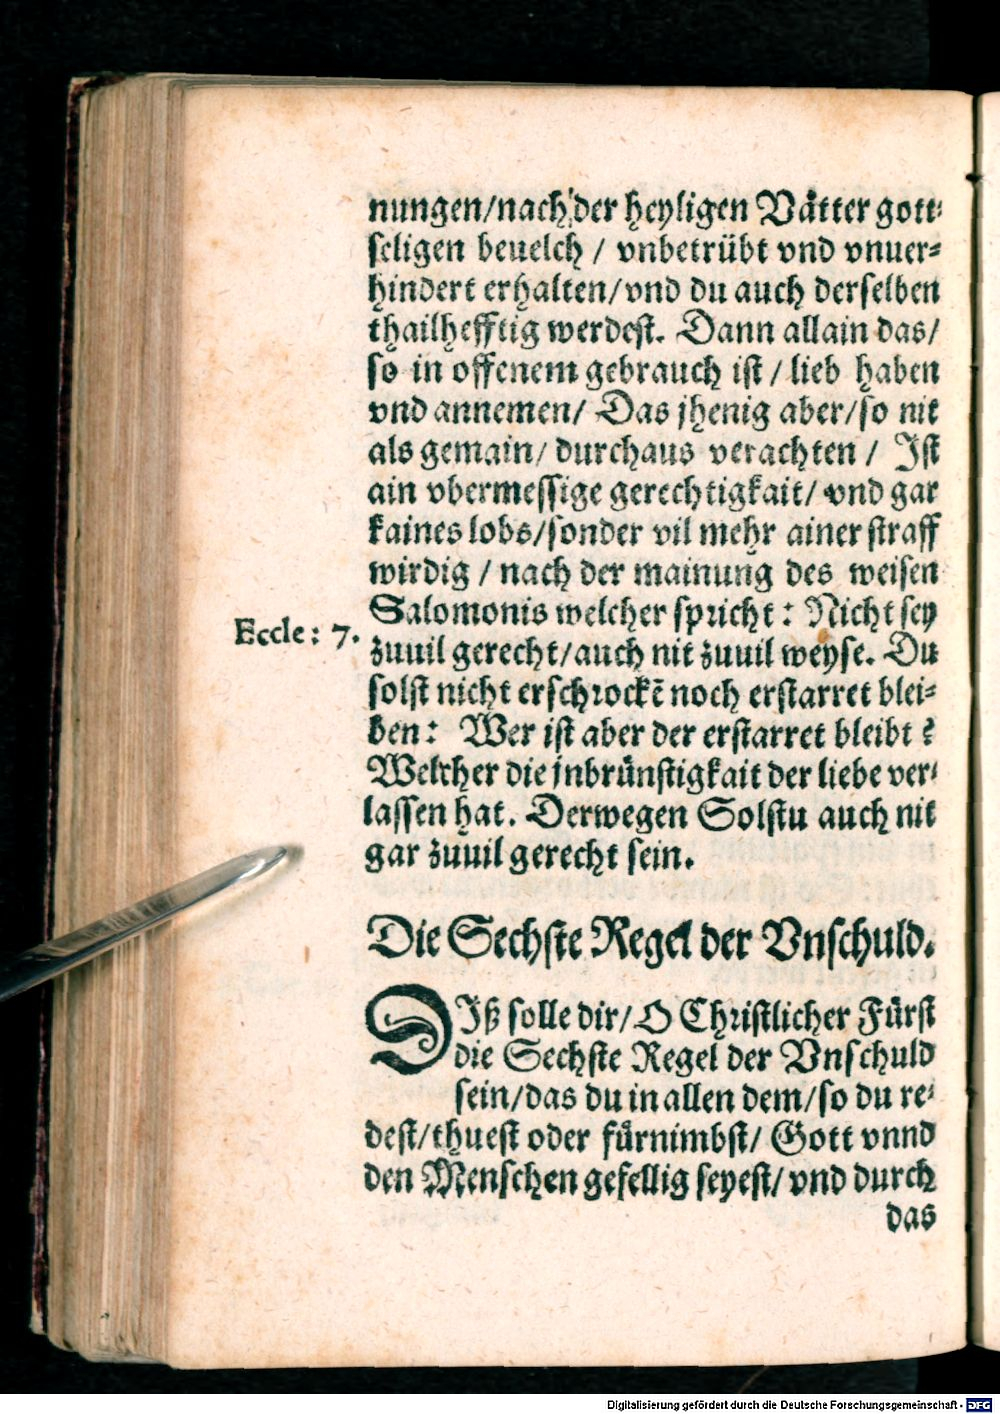 nungen/nach der heyligen Vätter gott-
seligen beuelch / vnbetrübt vnd vnuer-
hindert erhalten/vnd du auch derselben
thailhefftig werdest. Dann allain das/
so in offenem gebrauch ist / lieb haben
vnd annemen/ Das jhenig aber/so nit
als gemain/ durchaus verachten / Ist
ain vbermessige gerechtigkait/ vnd gar
kaines lobs/sonder vil mehr ainer straff
wirdig / nach der mainung des weisen
Salomonis welcher spricht : Nicht sey
Eccle: 7.
zuuil gerecht/auch nit zuuil weyse. Du
solst nicht erschrockẽ noch erstarret blei-
ben : Wer ist aber der erstarret bleibt ?
Welcher die jnbrünstigkait der liebe ver-
lassen hat. Derwegen Solstu auch nit
gar zuuil gerecht sein.
Die Sechste Regel der Vnschuld.
DIß solle dir/ O Christlicher Fürst
die Sechste Regel der Vnschuld
sein/das du in allen dem/so du re-
dest/thuest oder fürnimbst/ Gott vnnd
den Menschen gefellig seyest/ vnd durch
das
Digitalisierung gefördert durch die Deutsche Forschungsgemeinschaft - DFG